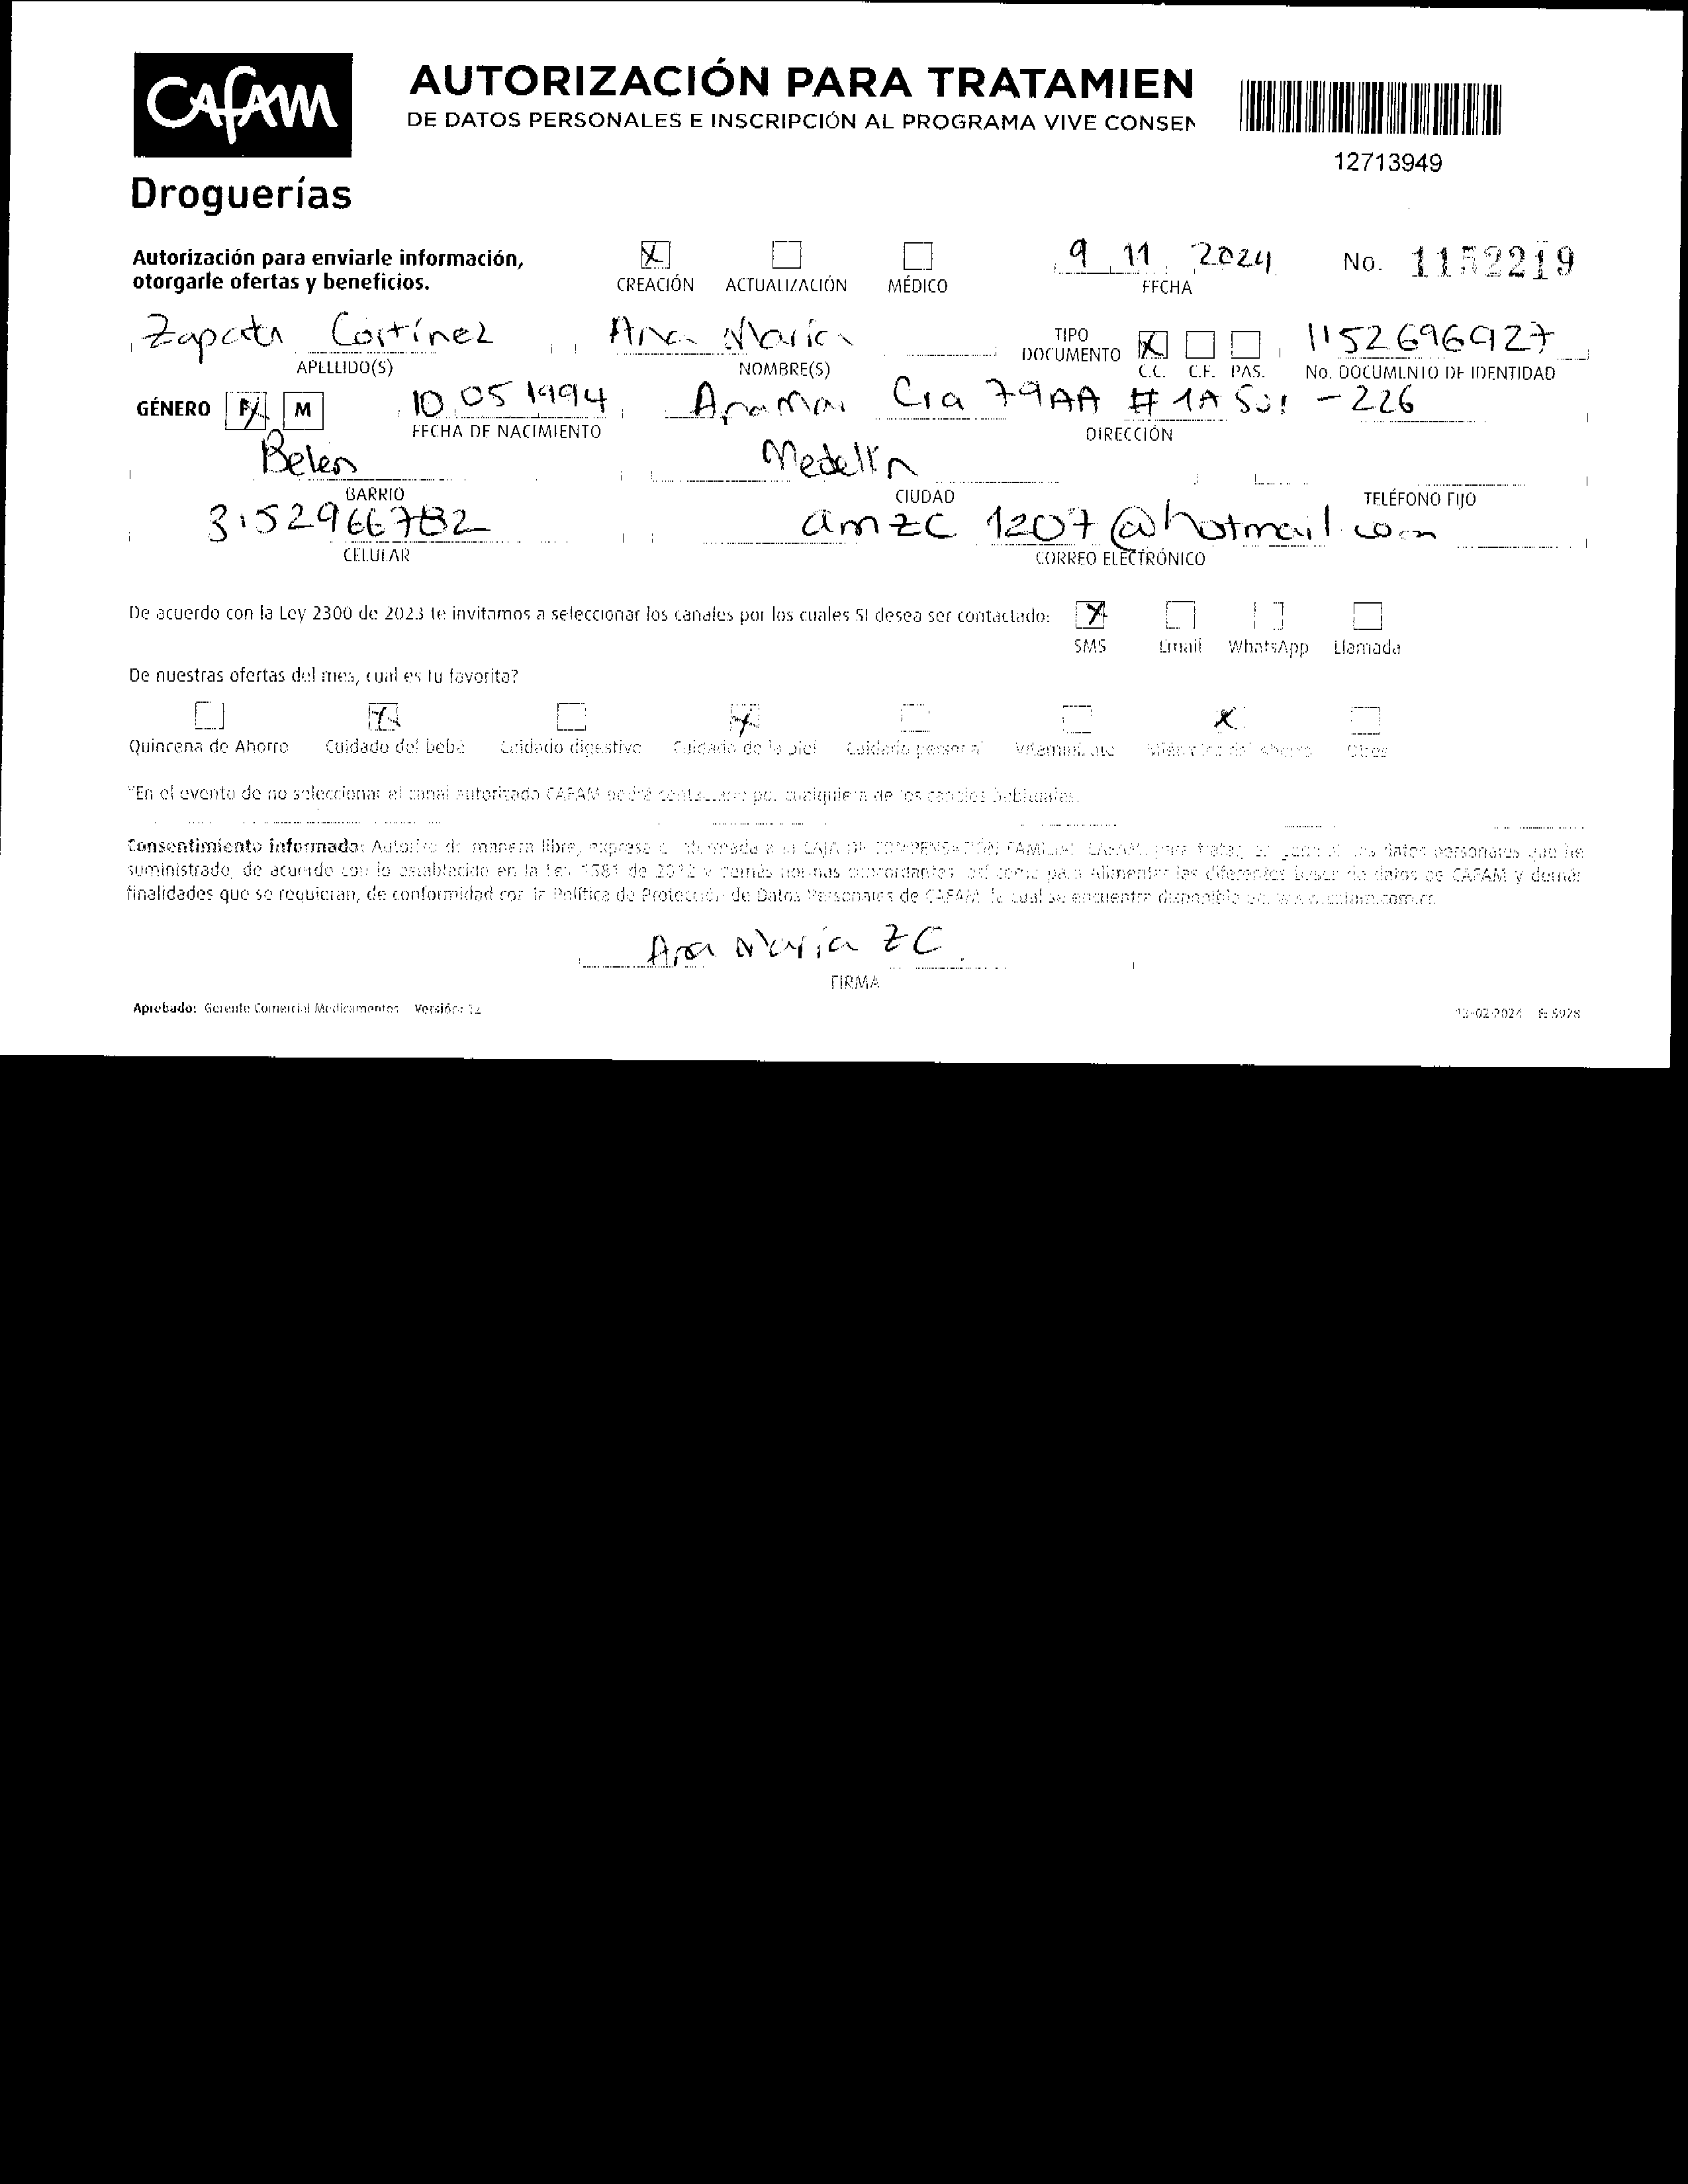 CAFAM
Droguerías
AUTORIZACIÓN PARA TRATAMIEN
DE DATOS PERSONALES E INSCRIPCIÓN AL PROGRAMA VIVE CONSEN
12713949
Autorización para enviarle información,
otorgarle ofertas y beneficios.
X CREACIÓN ACTUALIZACIÓN MÉDICO
9 11 2024
FECHA
No. 1152219
Zapata Cortinez
APELLIDO(S)
Ana Maria
NOMBRE(S)
TIPO DOCUMENTO X C.C. C.E. PAS.
1152696927
No. DOCUMENTO DE IDENTIDAD
GÉNERO F M
10 05 1994
FECHA DE NACIMIENTO
Cra 79AA # 1A Sur - 226
DIRECCIÓN
Belen
BARRIO
Medellin
CIUDAD
TELÉFONO FIJO
CELULAR
amzc 1207@hotmail.com
CORREO ELECTRÓNICO
De acuerdo con la Ley 2300 de 2023 te invitamos a seleccionar los canales por los cuales SI desea ser contactado:
X SMS Email WhatsApp Llamada
De nuestras ofertas del mes, cual es tu favorita?
Quincena de Ahorro X Cuidado del bebé Cuidado digestivo X Cuidado de la piel Cuidado personal X Miércoles del ahorro Otros
*En el evento de no seleccionar el canal autorizado CAFAM podrá contactarlo por cualquiera de los canales habituales.
Consentimiento informado: Autorizo de manera libre, expresa e informada a la CAJA DE COMPENSACIÓN FAMILIAR CAFAM, para tratar los datos personales que he
suministrado, de acuerdo con lo establecido en la Ley 1581 de 2012 y demás normas concordantes, así como para alimentar las diferentes bases de datos de CAFAM y demás
finalidades que se requieran, de conformidad con la Política de Protección de Datos Personales de CAFAM la cual se encuentra disponible en: www.cafam.com.co
Ana Maria ZC
FIRMA
Aprobado: Gerente Comercial Medicamentos Versión: 12